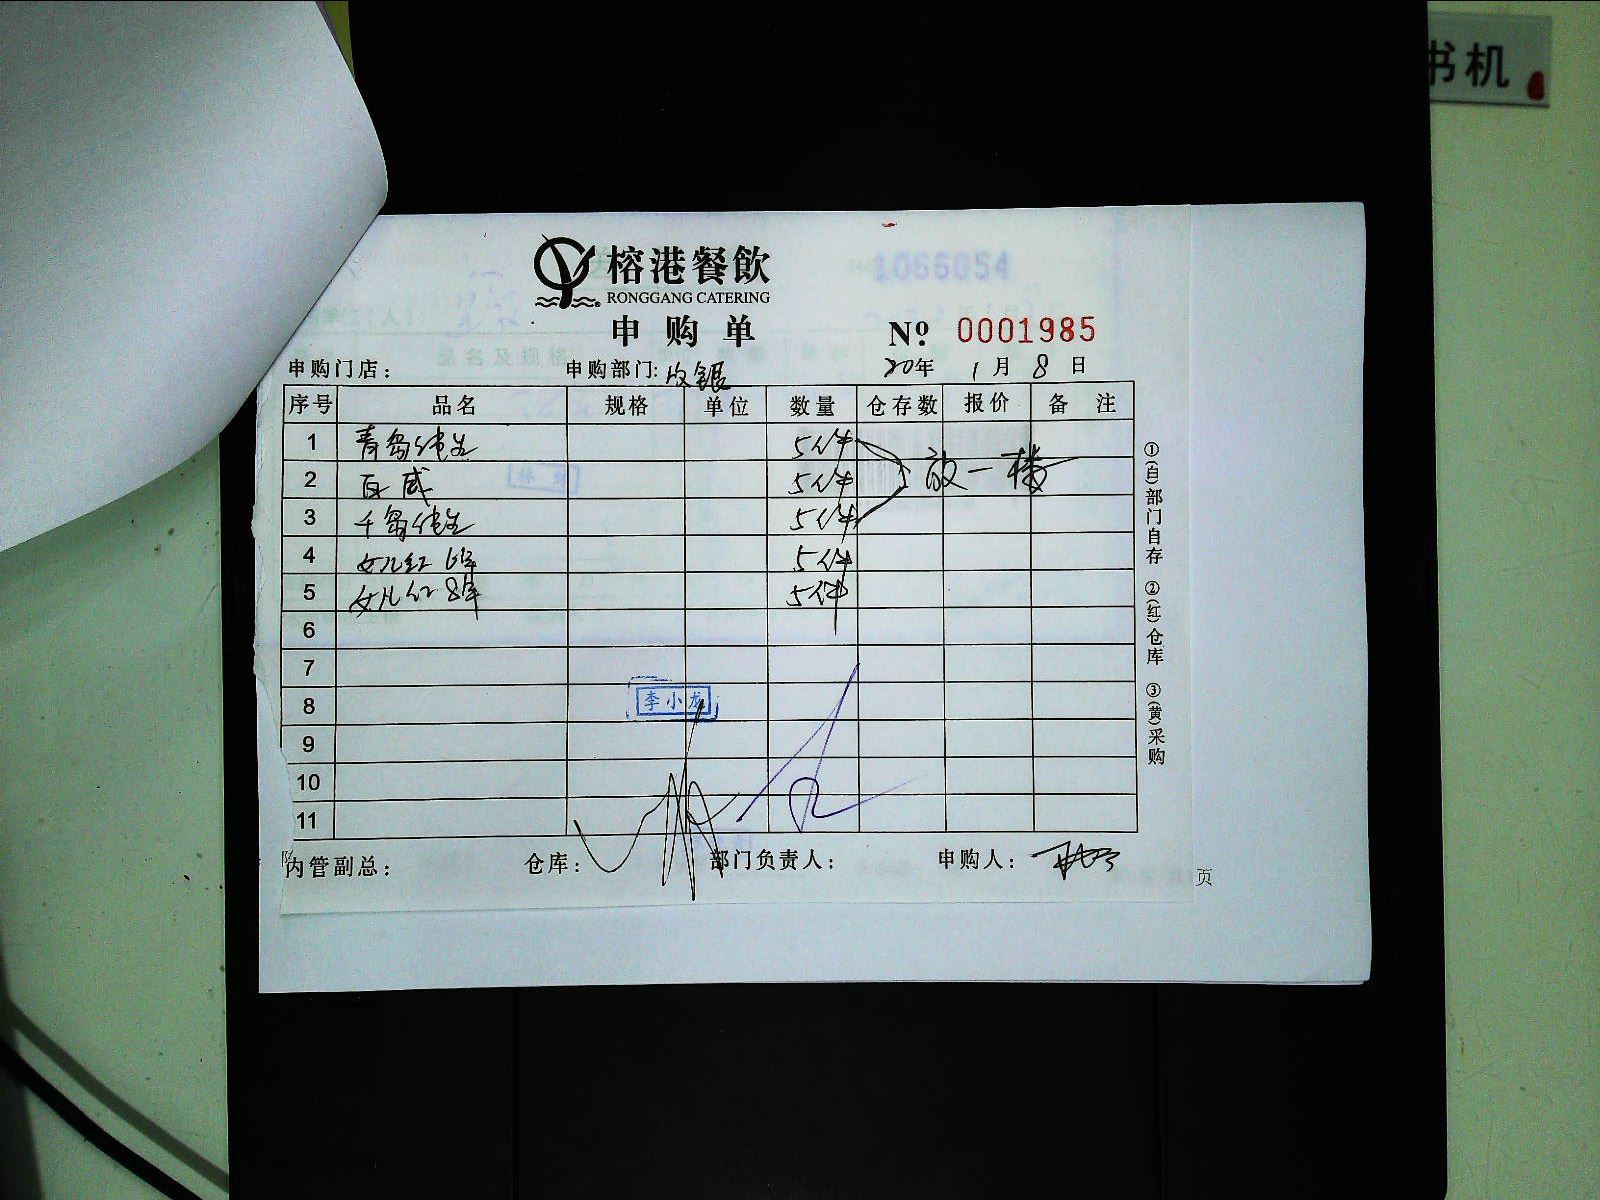 书机
榕港餐飲
RONGGANG CATERING
1066054
申购单
№ 0001985
申购门店: 申购部门: 收银 20年 1月 8日
序号 品名 规格 单位 数量 仓存数 报价 备注
1 青岛纯生 5件
2 百威 5件 放一楼
3 千岛纯生 5件
4 女儿红 6年 5件
5 女儿红 8年 5件
6
7
8 李小龙
9
10
11
内管副总: 仓库: 部门负责人: 申购人:
①(白)部门自存 ②(红)仓库 ③(黄)采购
页